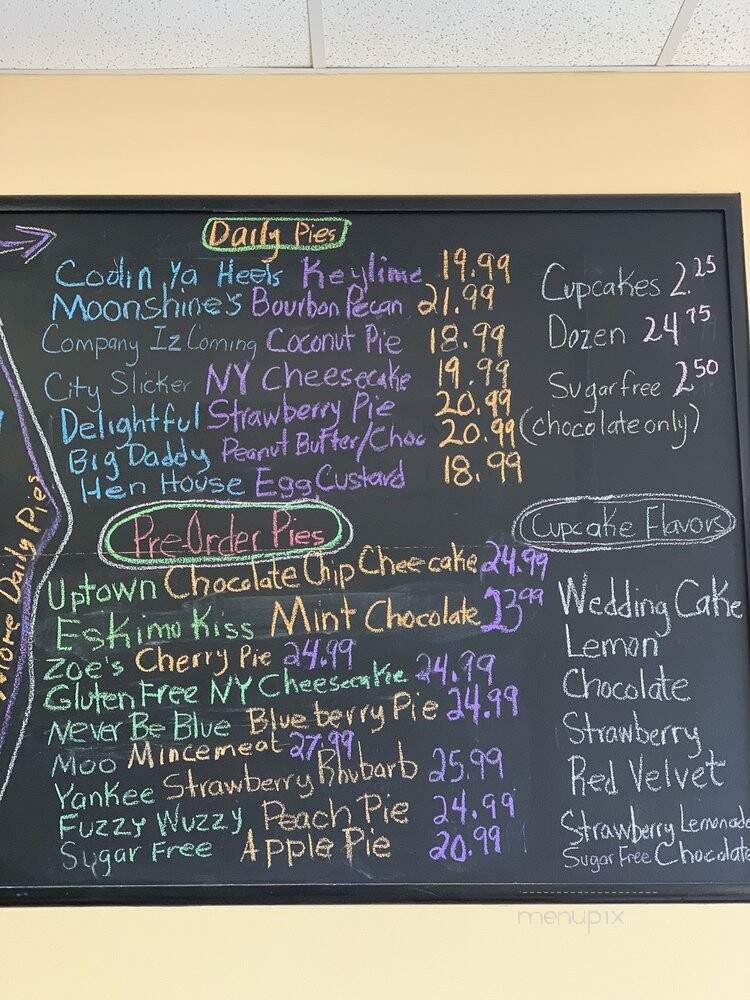 Daily Pies
Coolin Ya Heels Keylime 19.99
Moonshine's Bourbon Pecan 21.99
Company Iz Coming Coconut Pie 18.99
City Slicker NY Cheesecake 19.99
Delightful Strawberry Pie 20.99
Big Daddy Peanut Butter/Choc 20.99
Hen House Egg Custard 18.99
Pre-Order Pies
Uptown Chocolate Chip Cheecake 24.99
Eskimo Kiss Mint Chocolate 23.99
Zoe's Cherry Pie 24.99
Gluten Free NY Cheesecake 24.99
Never Be Blue Blueberry Pie 24.99
Moo Mincemeat 27.99
Yankee Strawberry Rhubarb 25.99
Fuzzy Wuzzy Peach Pie 24.99
Sugar Free Apple Pie 20.99
Cupcakes 2.25
Dozen 24.75
Sugarfree 2.50
(chocolate only)
Cupcake Flavors
Wedding Cake
Lemon
Chocolate
Strawberry
Red Velvet
Strawberry Lemonade
Sugar Free Chocolate
Daily Pies
menupix